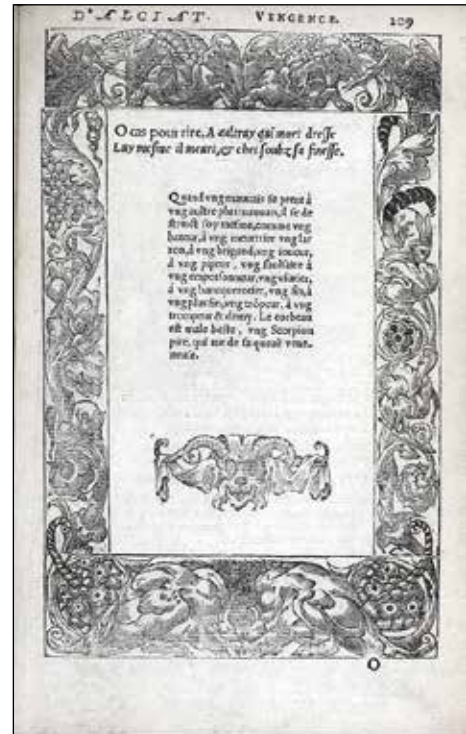 D'ALCIAT. VENGENCE. 109
O cas pour rire, A aultruy qui mort dresse
Luy mesme il meurt, & chet soubz sa finesse.
Quand vng mauuais se prent à
vng aultre plus mauuais, il se de
struict soy mesme, comme vng
bateur, à vng meurtrier vng lar
ron, à vng brigand, vng ioueur,
à vng pipeur, vng faulsaire à
vng empoisonneur, vng vsurier,
à vng banqueroutier, vng fin, à
vng plus fin, vng trõpeur, à vng
trompeur & demy. Le corbeau
est male beste, vng Scorpion
pire, qui tue de sa queuë vene-
neuse.
O